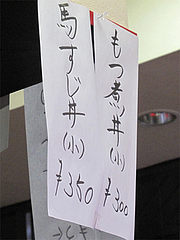 もつ煮丼(小)
¥300
馬すじ丼(小)
¥350